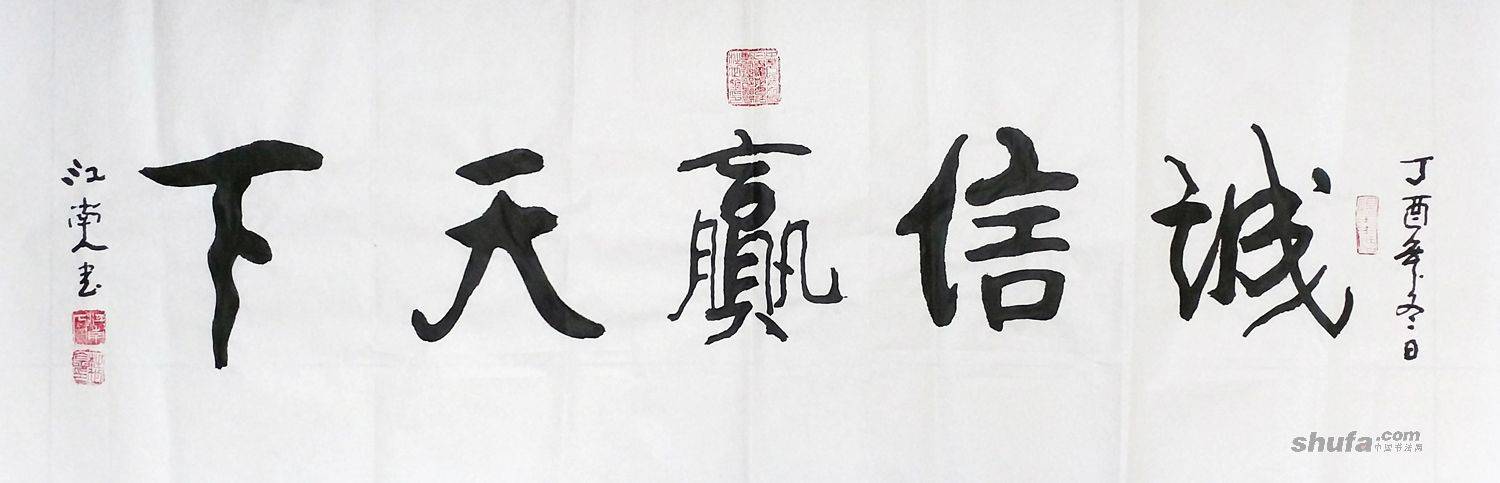 丁酉年冬日
诚信赢天下
江南人书
shufa.com
中国书法网